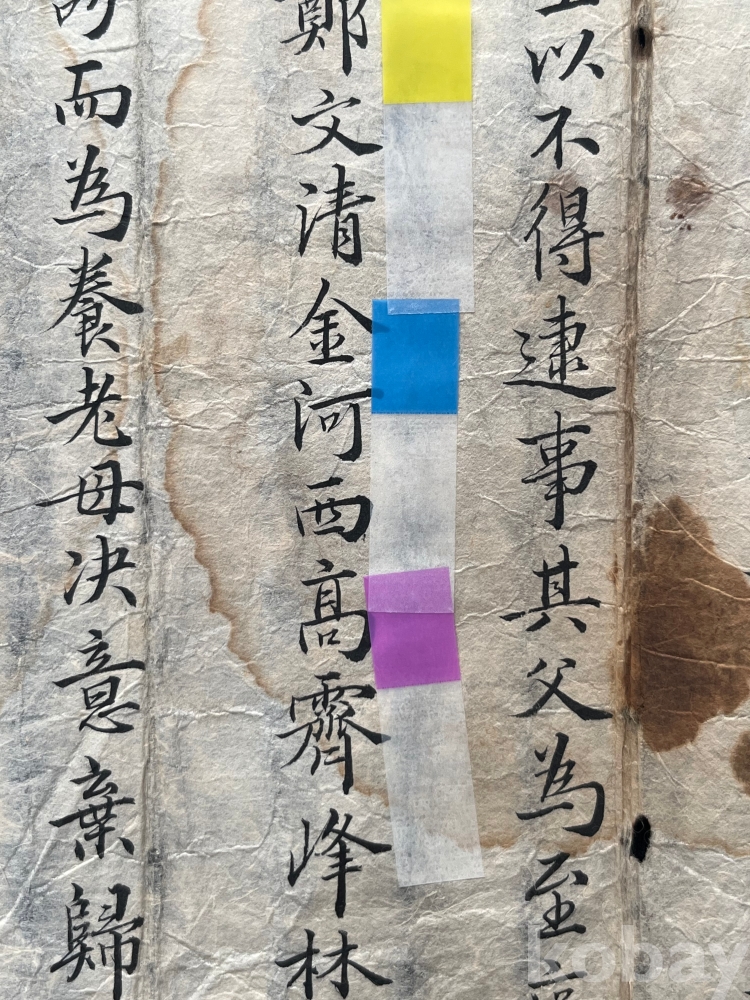 以不得逮事其父為至
鄭文清金河西高霽峰林
而為養老母決意棄歸
Kobay